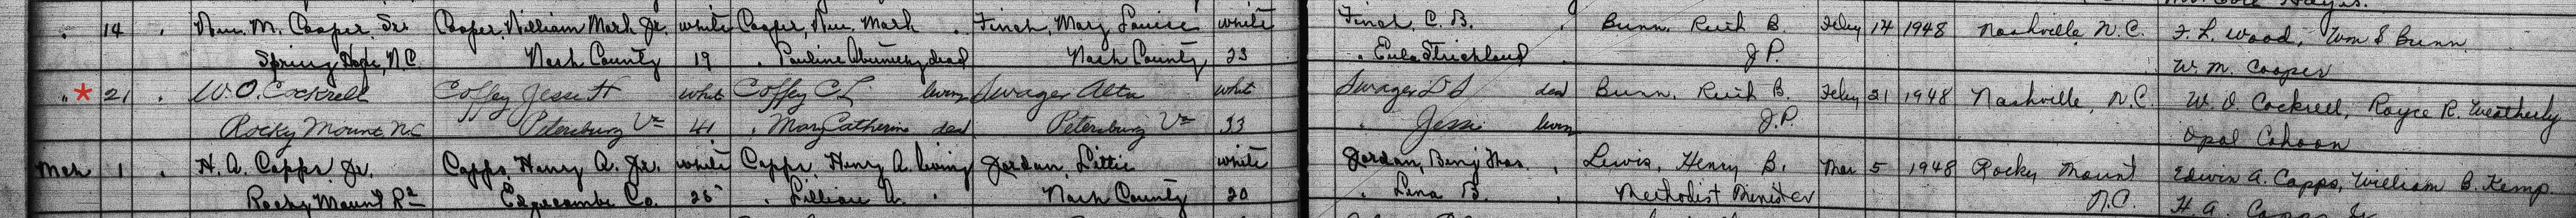 14 . Wm. M. Cooper, Sr. Cooper, William Mark Jr. white Cooper, Wm. Mark . Finch, Mary Louise white Finch, C. B. . Bunn, Ruth B. Feby 14 1948 Nashville, N.C. F. L. Wood, Wm S Bunn
Spring Hope, N.C. Nash County 19 . Pauline dead Nash County 23 . Eula Strickland . J P. W. M. Cooper
" * 21 . W. O. Cockrell Coffey Jesse H whit Coffey C L living Swager Alta whit Swager D S dead Bunn, Ruth B. Feby 21 1948 Nashville, N.C. W. O Cockrell, Royce R. Weatherly
Rocky Mount NC Petersburg Va 41 . Mary Catherine dead Petersburg Va 33 . Jessi living J.P. Opal Cahoon
Mch 1 . H. A. Capps Jr. Capps, Henry A. Jr. white Capps, Henry A. living Jordan, Lettie white Jordan, Benj Thos. . Lewis, Henry B. Mar 5 1948 Rocky Mount Edwin A. Capps, William B. Kemp
Rocky Mount R2 Edgecombe Co. 25 . Lillian A. . Nash County 20 . Lena B. . Methodist Minister N.C. H. A. Capps Jr